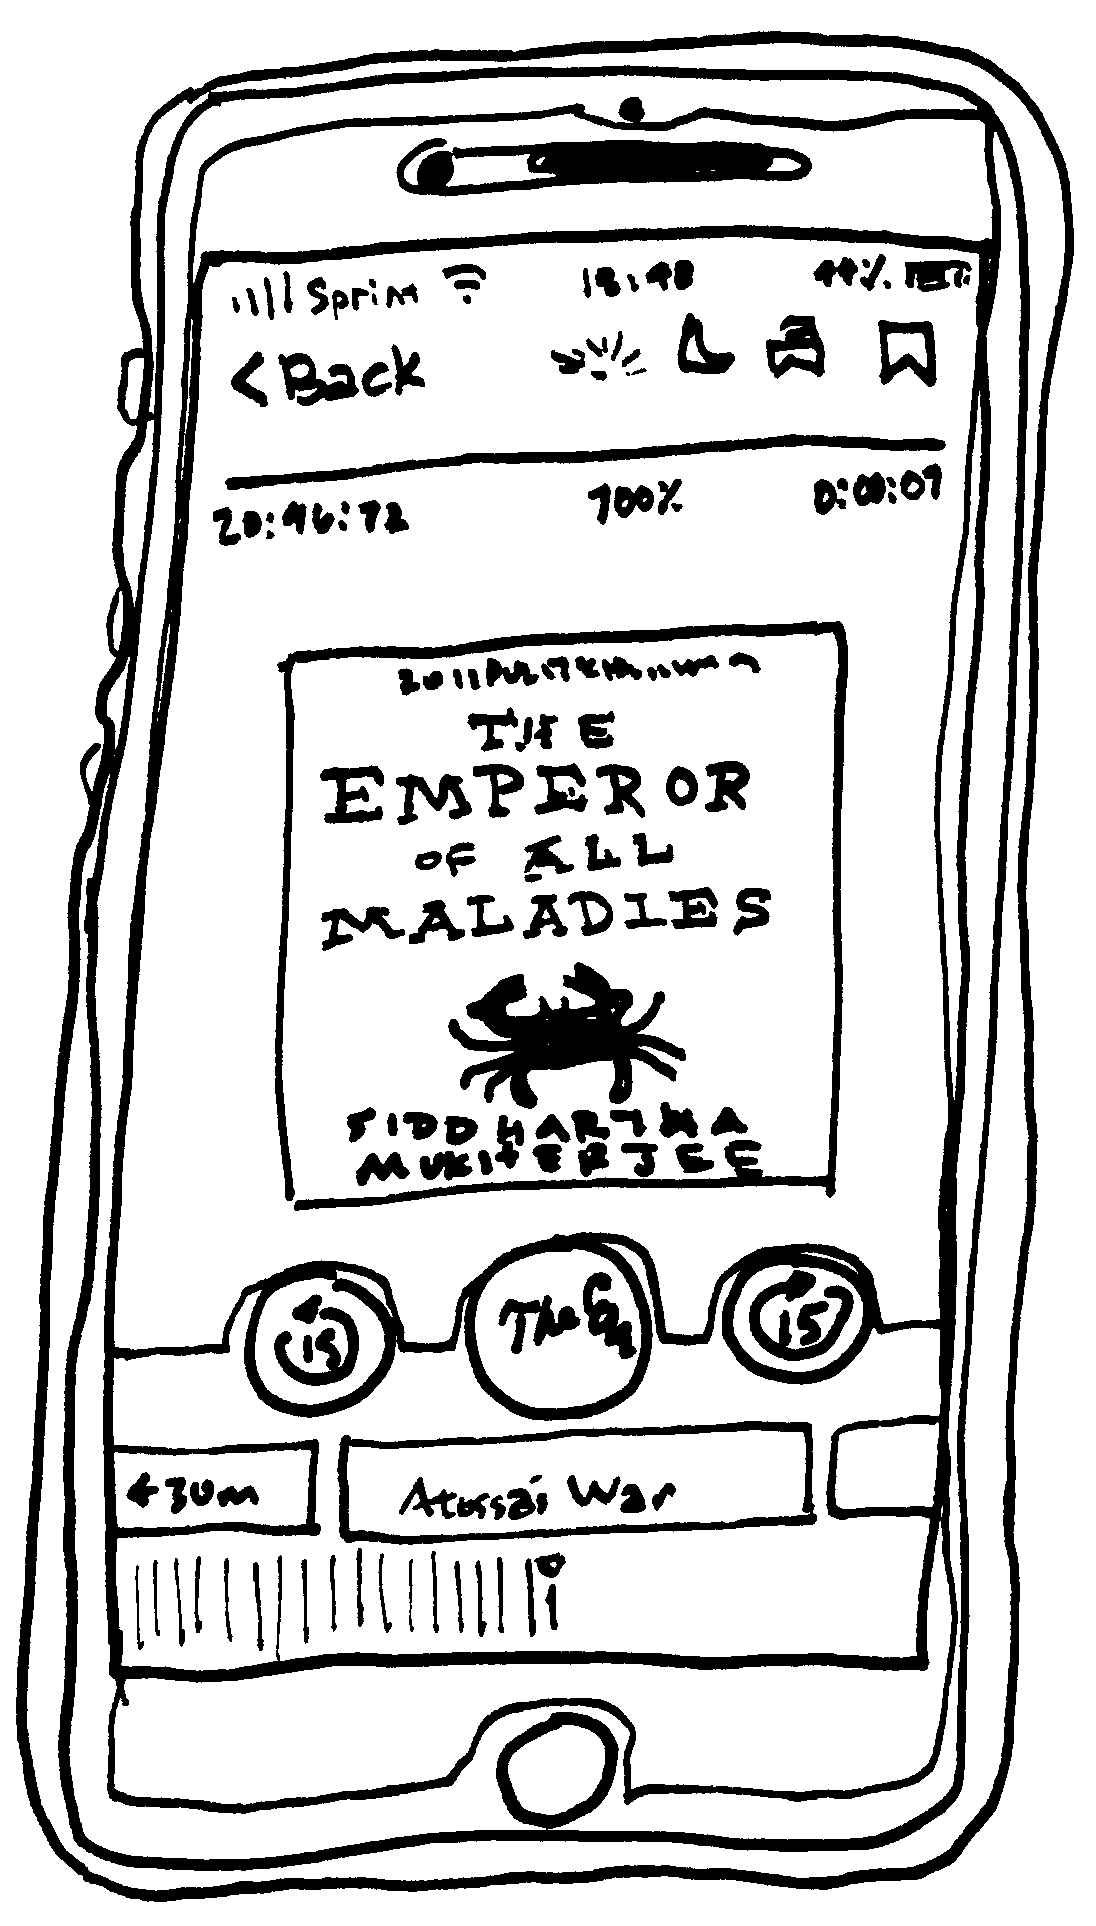 Sprint 18:48 44%
< Back
20:46:72 100% 0:00:07
THE
EMPEROR
OF ALL
MALADIES
SIDDHARTHA
MUKHERJEE
15 The 15
30m Atossa's War